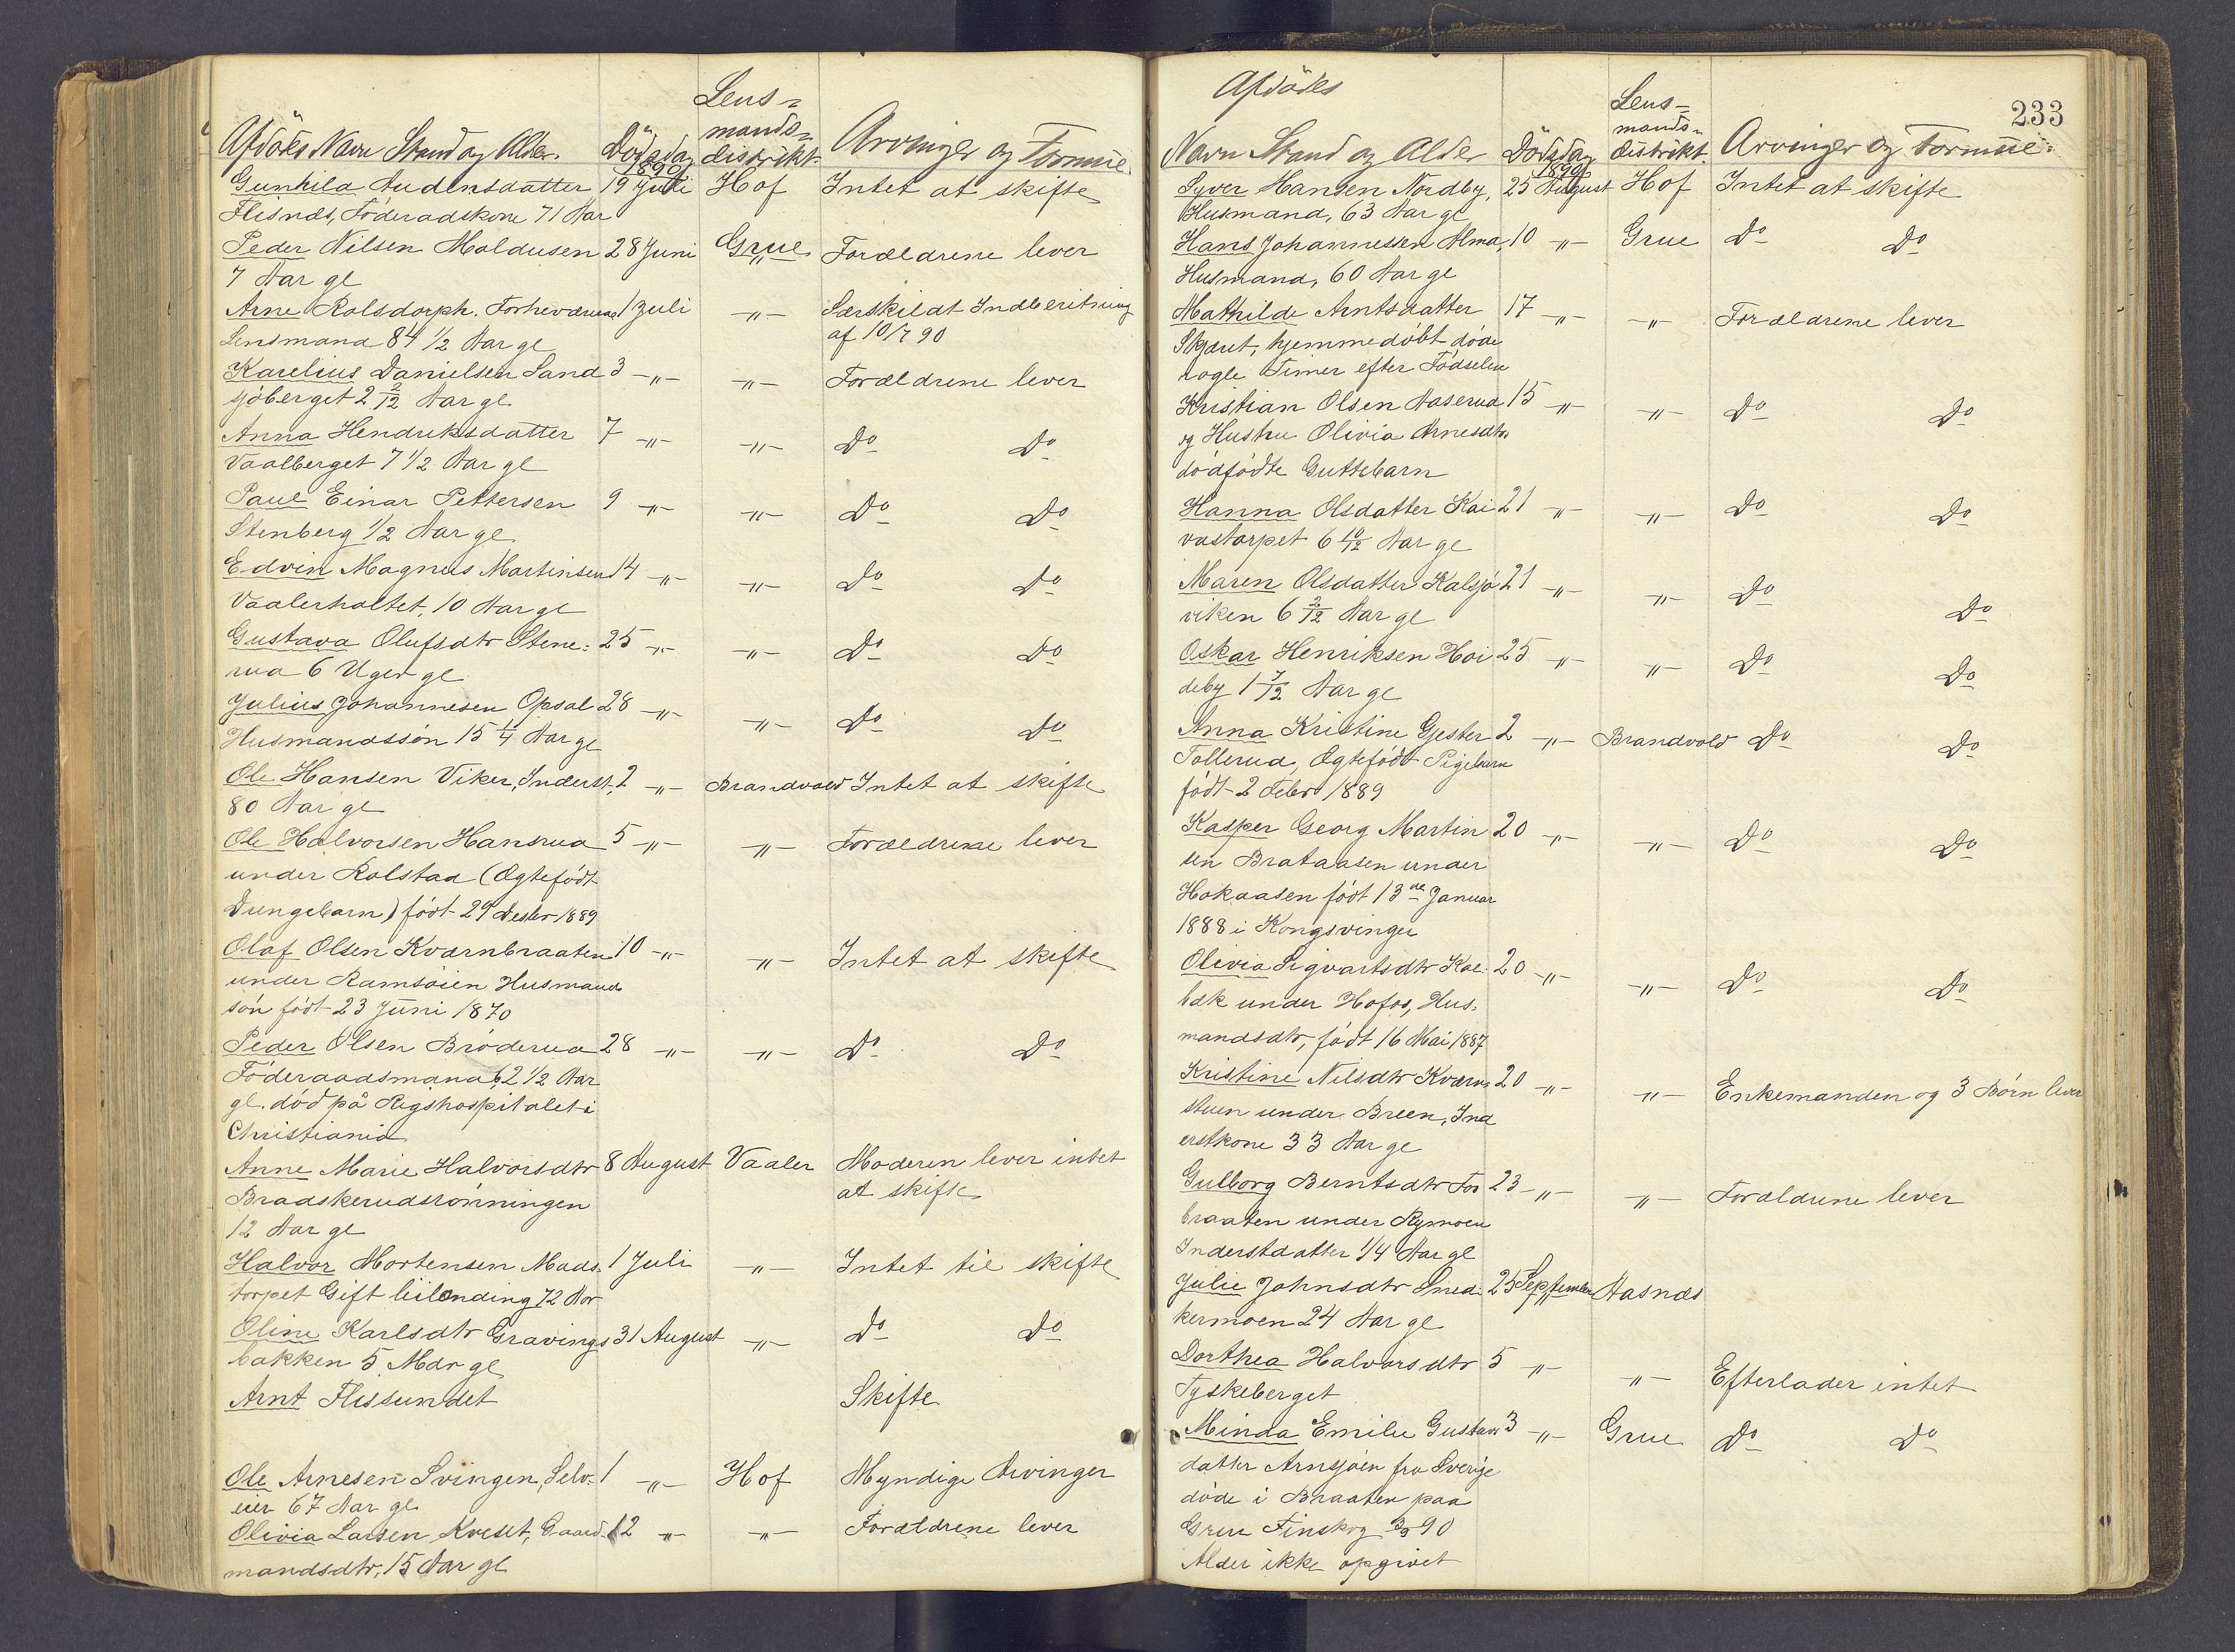 Lens-
mands-
Afdödes Navn Stand og Alder. Dödsdag distrikt. Arvinger og Formue.
1890
Gunhild Audensdatter 19 Juli Hof Intet at skifte
Flisnæs, Föderaadskone 71 Aar
Peder Nilsen Moldusen 28 Juni Grue Forældrene lever
7 Aar gl
Arne Rolsdorph. Forhenværende 1 Juli -"- Særskildt Indberetning
Lensmand 84 1/2 Aar gl af 10/7 90
Karelius Danielsen Sand 3 -"- -"- Forældrene lever
sjöberget 2 2/12 Aar gl
Anna Hendriksdatter 7 -"- -"- Do Do
Vaalberget 7 1/2 Aar gl
Paul Einar Pettersen 9 -"- -"- Do Do
Stenberg 1/2 Aar gl
Edvin Magnus Martinsen 14 -"- -"- Do Do
Vaalerholtet, 10 Aar gl
Gustava Olufsdtr Stene- 25 -"- -"- Do Do
rua 6 Uger gl
Julius Johannesen Opsal 28 -"- -"- Do Do
Husmandssön 15 1/4 Aar gl
Ole Hansen Viker, Inderst, 2 -"- Brandvold Intet at skifte
80 Aar gl
Ole Halvorsen Hansrua 5 -"- -"- Forældrene lever
under Rolstad (Ægtefödt
Drengebarn) födt 29 Desbr 1889
Olaf Olsen Kværnbraaten 10 -"- -"- Intet at skifte
under Ramsöien Husmand
sön födt 23 Juni 1870
Peder Olsen Bröderua 28 -"- -"- Do Do
Föderaadsmand 62 1/2 Aar
gl. död på Rigshospitalet i
Christiania
Anne Marie Halvorsdtr 8 August Vaaler Moderen lever intet
Bradskerudsrönningen at skifte
12 Aar gl
Halvor Mortensen Mads- 1 Juli -"- Intet til skifte
torpet Gift leilending 72 Aar
Oline Karlsdtr Gravings 31 August -"- Do Do
bakken 5 Mdr gl
Arnt Flissundet Skifte
Ole Arnesen Svingen, Selv- 1 -"- Hof Myndige Arvinger
eier 67 Aar gl
Olivia Larsen Kveset, Gaard- 12 -"- -"- Forældrene lever
mandsdtr, 15 Aar gl
233
Afdödes Lens-
mands-
Navn Stand og Alder Dödsdag distrikt. Arvinger og Formue.
1890
Syver Hansen Nordby, 25 August Hof Intet at skifte
Husmand, 63 Aar gl
Hans Johannessen Alma, 10 -"- Grue Do Do
Husmand, 60 Aar gl
Mathilde Arntsdatter 17 -"- -"- Forældrene lever
Skjæret, hjemmedöbt döde
nogle Timer efter Födselen
Kristian Olsen Aaserud 15 -"- -"- Do Do
og Hustru Olivia Arnesdtr
dödfödte Guttebarn
Hanna Olsdatter Kai 21 -"- -"- Do Do
vastorpet 6 10/12 Aar gl
Maren Olsdatter Kalsjö 21 -"- -"- Do Do
viken 6 2/12 Aar gl
Oskar Henriksen Hoi 25 -"- -"- Do Do
deby 1 7/12 Aar gl
Anna Kristine Gjester 2 -"- Brandvold Do Do
Tollerud, Ægtefödt Pigebarn
födt 2 Febr 1889
Kasper Georg Martin 20 -"- -"- Do Do
sen Brataasen under
Hokaasen födt 13de Januar
1888 i Kongsvinger
Olivia Sigvartsdtr Kol- 20 -"- -"- Do Do
bæk under Hofos, Hus-
mandsdtr, födt 16 Mai 1887
Kristine Nilsdtr Kværn- 20 -"- -"- Enkemanden og 3 Börn lever
stuen under Breen, Ind
erstkone 33 Aar gl
Gulborg Berntsdtr Fos 23 -"- -"- Forældrene lever
braaten under Rymoen
Inderstdatter 1/4 Aar gl
Julie Johnsdtr Sned- 25 September Aasnæs
kermoen 24 Aar gl
Dorthea Halvorsdtr 5 -"- -"- Efterlader intet
Tyskeberget
Minda Emilie Gustavs 3 -"- Grue Do Do
datter Arnsjöen fra Sverige
döde i Braaten paa
Grue Finskog 3/9 90
Alder ikke opgivet